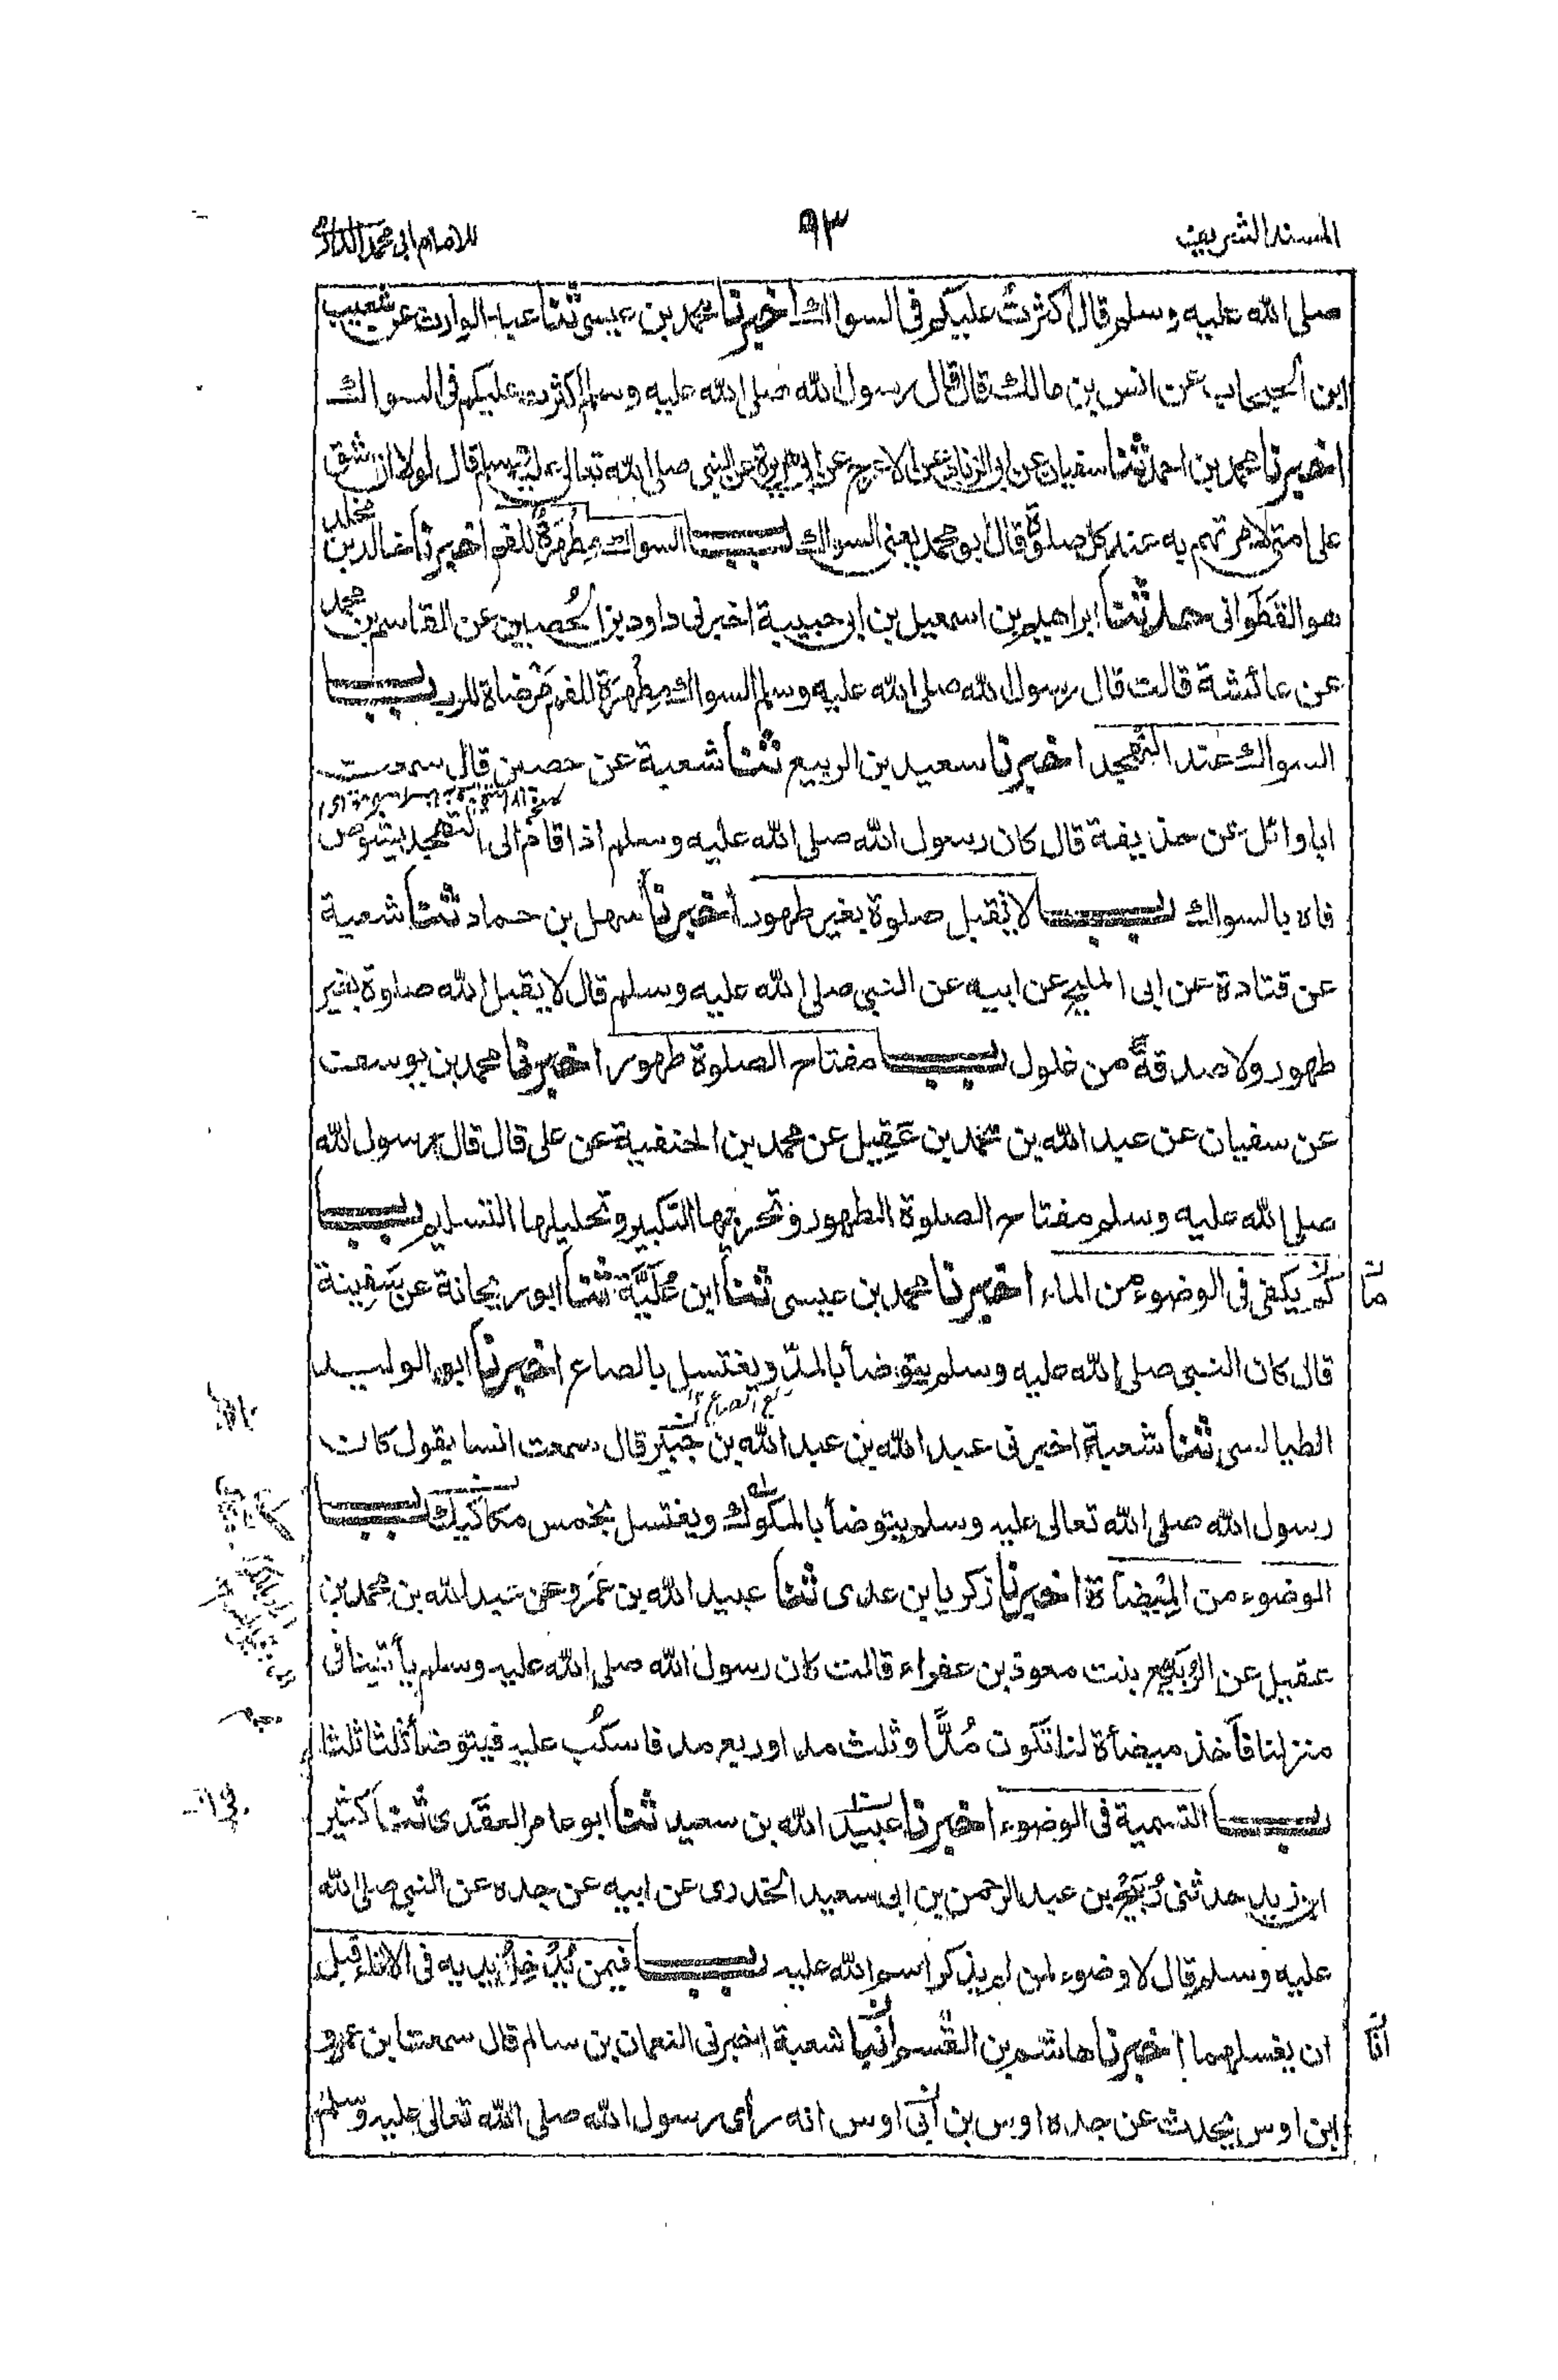 المسند الشريف ٩٣ للامام ابى محمد الدارمى
صلى الله عليه وسلم قال اكثرتُ عليكم فى السواك اخبرنا محمد بن عيسى ثنا عبد الوارث عن شعيب
ابن الحبحاب عن انس بن مالك قال قال رسول الله صلى الله عليه وسلم اكثرت عليكم فى السواك
اخبرنا محمد بن احمد ثنا سفيان عن ابى الزناد عن الاعرج عن ابى هريرة عن النبى صلى الله تعالى عليه وسلم قال لولا ان اشق
على امتى لامرتهم به عند كل صلوة قال ابو محمد يعنى السواك باب السواك مِطْهَرَةٌ للفم اخبرنا خالد بن مخلد
هو القَطَوانى حملا ثنا ابراهيم بن اسمعيل بن ابى حبيبة اخبرنى داود بن الحُصين عن القاسم بن محمد
عن عائشة قالت قال رسول الله صلى الله عليه وسلم السواك مِطْهرَة للفم مَرْضاة للرب باب
السواك عند التهجد اخبرنا سعيد بن الربيع ثنا شعبة عن حصين قال سمعت
ابا وائل عن حذيفة قال كان رسول الله صلى الله عليه وسلم اذا قام الى التهجد يشوص
فاه بالسواك باب لا تقبل صلوة بغير طهور اخبرنا سهل بن حماد ثنا شعبة
عن قتادة عن ابى المليح عن ابيه عن النبى صلى الله عليه وسلم قال لا يقبل الله صلوة بغير
طهور ولا صدقةً من غلول باب مفتاح الصلوة طهور اخبرنا محمد بن يوسف
عن سفيان عن عبد الله بن محمد بن عَقِيل عن محمد بن الحنفية عن على قال قال رسول الله
صلى الله عليه وسلم مفتاح الصلوة الطهور وتحريمها التكبير وتحليلها التسليم باب
كم يكفى فى الوضوء من الماء اخبرنا محمد بن عيسى ثنا ابن عُلَيَّة ثنا ابو ريحانة عن سَفِينة
ما
قال كان النبى صلى الله عليه وسلم يتوضأ بالمدّ ويغتسل بالصاع اخبرنا ابو الوليد
الطيالسى ثنا شعبة اخبرنى عبد الله بن عبد الله بن جبير قال سمعت انسا يقول كان
رسول الله صلى الله تعالى عليه وسلم يتوضأ بالمكوك ويغتسل بخمس مكاكيك باب
الوضوء من المِيضاة اخبرنا زكريا بن عدى ثنا عبيد الله بن عَمْرو عن عبد الله بن محمد بن
عقيل عن الرُبَيِّع بنت معوذ بن عفراء قالت كان رسول الله صلى الله عليه وسلم يأتينا فى
منزلنا فآخذ ميضأة لنا تكون مُدًّا وثلث مد او ربع مد فاسكُب عليه فيتوضأ ثلثا ثلثا
باب التسمية فى الوضوء اخبرنا عبيد الله بن سعيد ثنا ابو عامر العقَدى ثنا كثير
ابن زيد حدثنى رُبَيْح بن عبد الرحمن بن ابى سعيد الخدرى عن ابيه عن جده عن النبى صلى الله
عليه وسلم قال لا وضوء لمن لم يذكر اسم الله عليه باب فيمن يُدْخِلُ يديه فى الاناء قبل
ان يغسلهما اخبرنا هاشم بن القسم انبا شعبة اخبرنى النعمان بن سالم قال سمعت ابن عمرو
انا
ابن اوس يحدث عن جده اوس بن ابى اوس انه رأى رسول الله صلى الله تعالى عليه وسلم